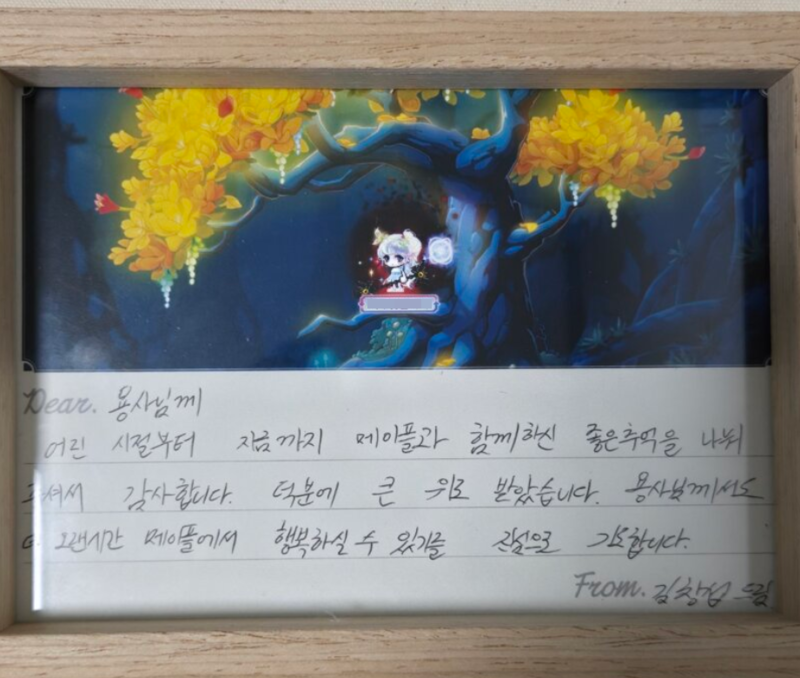 Dear. 용사님께
어린 시절부터 지금까지 메이플과 함께하신 좋은추억을 나눠
주셔서 감사합니다. 덕분에 큰 위로 받았습니다. 용사님께서도
오랜시간 메이플에서 행복하실 수 있기를 진심으로 기도합니다.
From. 김창섭 드림